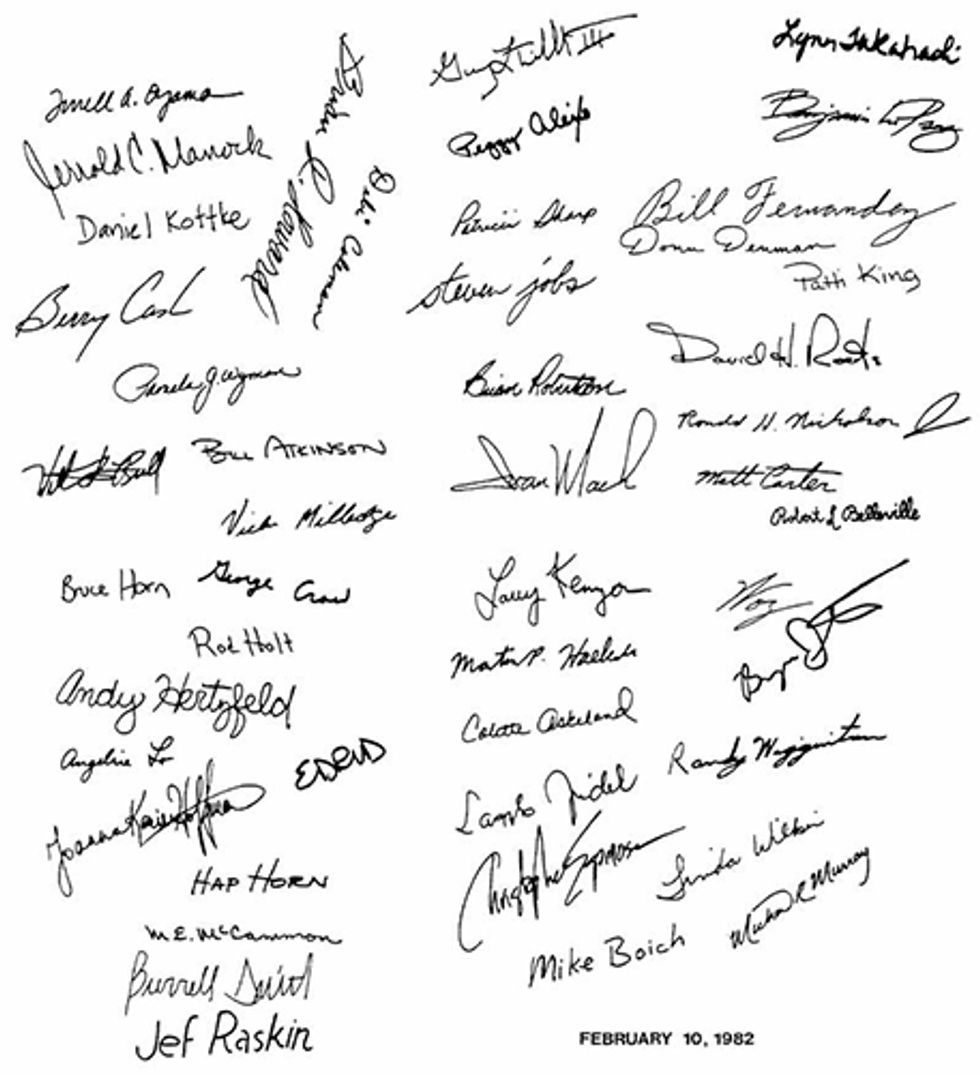 Terrell A. Oyama
Jerrold C. Manock
Daniel Kottke
Berry Cash
Pamela J. Wyman
Bill Atkinson
Vicki Milledge
Bruce Horn
George Crow
Rod Holt
Andy Hertzfeld
Angeline Lo
Joanna Karine Hoffman
Hap Horn
M.E. McCammon
Burrell Smith
Jef Raskin
Brian R. Howard
"Deb" Coleman
Guy L. Tribble III
Peggy Alexio
Patricia Sharp
steven jobs
Brian Robertson
Ivan Mach
Larry Kenyon
Martin P. Haeberli
Colette Askeland
Christopher Espinosa
Mike Boich
Lynn Takahashi
Benjamin L. Pang
Bill Fernandez
Donn Denman
Patti King
David H. Roots
Ronald H. Nicholson Jr
Matt Carter
Robert L Belleville
Woz
Bryan
Randy Wigginton
Linda Wilkin
Michael R Murray
FEBRUARY 10, 1982